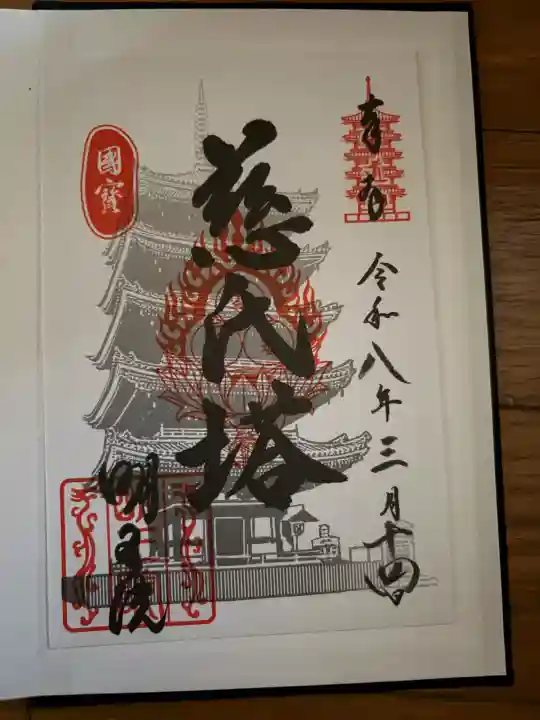 奉拝
令和八年三月十四日
慈氏塔
國寳
明王院